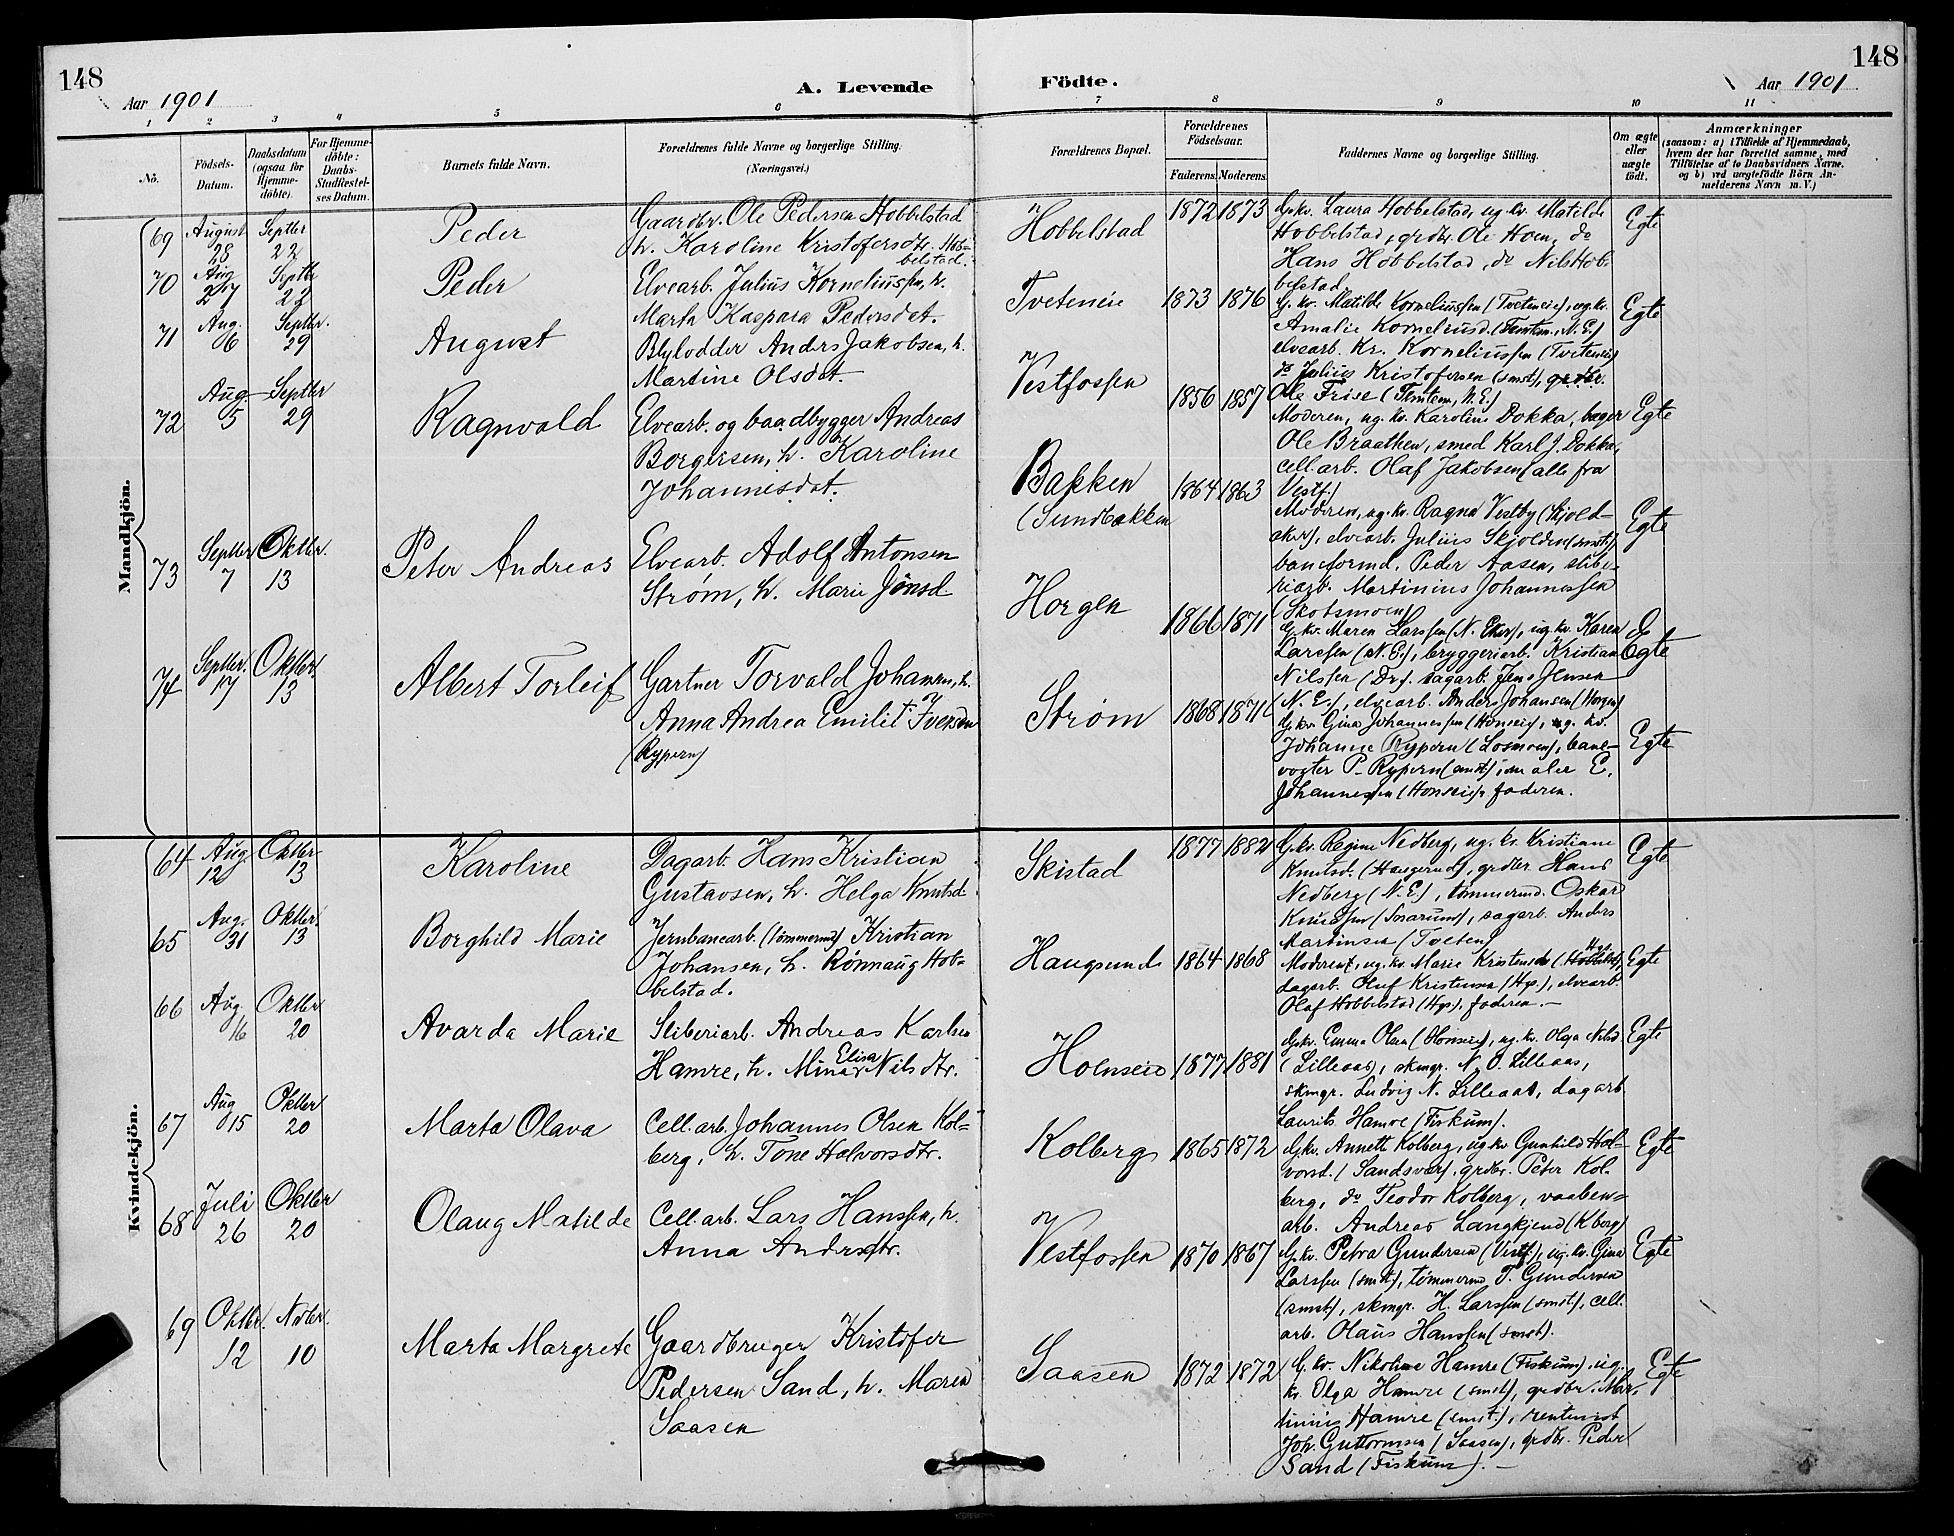 148
148
Aar 1901
A. Levende
Födte.
Aar 1901
1 2 3 4 5 6 7 8 9 10 11
No.
Födsels-
Datum.
Daabsdatum
(ogsaa for
Hjemme-
döbte).
For Hjemme-
döbte:
Daabs-
Stadfæstel-
ses Datum.
Barnets fulde Navn.
Forældrenes fulde Navne og borgerlige Stilling.
(Næringsvei.)
Forældrenes Bopæl.
Forældrenes
Födselsaar.
Faderens. Moderens.
Faddernes Navne og borgerlige Stilling.
Om ægte
eller
uægte
födt.
Anmærkninger
(saasom: a) i Tilfælde af Hjemmedaab,
hvem der har forrettet samme, med
Tilföielse af to Daabsvidners Navne,
og b) ved uægtefödte Börn An-
melderens Navn m. V.)
Mandkjön.
69 August 28 Septbr 22
Peder
Gaardbr. Ole Pedersen Hobbelstad
h. Karoline Kristofersdtr. Hob-
belstad.
Hobbelstad
1872 1873
Gkv. Laura Hobbelstad, ug. kv. Matilde
Hobbelstad, grdbr. Ole Hoen, do
Hans Hobbelstad, do Nils Hob-
belstad
Egte
70 Aug 27 Septbr 22
Peder
Elvearb. Julius Korneliussen, h.
Marta Kaspara Pedersdat.
Tveteneie
1873 1876
G. kv. Matilde Korneliussen (Tveteneie), ug. kv.
Amalie Korneliusd. (Temtem., N. E.)
elvearb. Kr. Korneliussen (Tveteneie)
do Julius Kristofersen (smst), grdbr.
Ole Frise (Temtem, N. E.)
Egte
71 Aug. 6 Septbr. 29
August
Blylodder Anders Jakobsen, h.
Martine Olsdat.
Vestfossen
1856 1857
Moderen, ug. kv. Karoline Dokka, bager
Ole Braathen, smed Karl J. Dokka,
cell. arb. Olaf Jakobsen (alle fra
Vestf.)
Egte
72 Aug 5 Septbr 29
Ragnvald
Elvearb. og baadbygger Andreas
Borgersen, h. Karoline
Johannesdat.
Bakken
(Sundbakken
1864 1863
Moderen, ug. kv. Ragna Vestby (Skjold-
aker), elvearb. Julius Skjolden (smst)
baneformd. Peder Aasen, slibe-
riarb. Martinius Johannessen
(Skotsmoen)
Egte
73 Septbr 7 Oktbr. 13
Peter Andreas
Elvearb. Adolf Antonsen
Strøm, h. Marie Jönsd
Horgen
1866 1871
Gkv. Maren Larssen (N. Eker), ug. kv. Karen
Larssen (N. E.), bryggeriarb. Kristian
Nilssen (Dr.), sagarb. Jens Jensen
(N. E.), elvearb. Anders Johansen (Horgen)
Egte
74 Septbr. 17 Oktbr. 13
Albert Torleif
Gartner Torvald Johannn, h.
Anna Andrea Emilie Iversen
(Rypern)
Strøm
1868 1871
Gkv. Gina Johannessen (Honseie), ug. kv.
Johanne Rypern (Losmoen), bane-
vogter P. Rypern (smst), maler E.
Johannessen (Honseie), faderen.
Egte
Kvindekjön.
64 Aug 12 Oktbr 13
Karoline
Dagarb. Hans Kristian
Gustavsen, h. Helga Knutsd
Skistad
1877 1882
Gkv. Regine Nedberg, ug. kv. Kristiane
Knutsd. (Haugerud), grdbr. Hans
Nedberg (N. E), tømmermd. Oskar
Knudsen (Snarum), sagarb. Anders
Martinsen (Tveten)
Egte
65 Aug. 31 Oktbr. 13
Borghild Marie
Jernbanearb. (tømmermd) Kristian
Johansen, h. Rønnaug Hob-
belstad.
Haugsund
1864 1868
Moderen, ug. kv. Marie Kristensd (Hobbelst),
dagarb. Oluf Kristensen (Hgs.), elvearb.
Olaf Hobbelstad (Hgs), faderen.—
Egte
66 Aug 16 Oktbr 20
Avarda Marie
Sliberiarb. Andreas Karlsen
Hamre, h. Mina Elisa Nilsdtr.
Hoenseie
1877 1881
Gkv. Emma Olsen (Honseie), ug. kv. Olga Nilsd
(Lilleaas), skmgr. N. O. Lilleaas,
skmgr. Ludvig N. Lilleaas, dagarb
Laurits Hamre (Fiskum).
Egte
67 Aug 15 Oktbr 20
Marta Olava
Cell. arb. Johannes Olsen Kol-
berg, h. Tone Halvorsdtr.
Kolberg
1865 1872
Gkv. Annette Kolberg, ug kv Gunhild Hal-
vorsd. (Sandsvær), grdbr. Peter Kol-
berg, do Teodor Kolberg, vaaben-
arb. Andreas Langkjend (Kberg)
Egte
68 Juli 26 Oktbr 20
Olaug Matilde
Cell. arb. Lars Hanssen, h.
Anna Andersdtr.
Vestfossen
1870 1867
Gkv. Petra Gundersen (Vestf), ug. kv. Gina
Larssen (smst), tømmermd T. Gundersen
(smst), skmgr. H. Larssen (smst), cell.
arb. Olaus Hanssen (smst).
Egte
69 Oktbr. 12 Novbr. 10
Marta Margrete
Gaardbruger Kristofer
Pedersen Sand, h. Maren
Saasen
Saasen
1872 1872
G. kv. Nikoline Hamre (Fiskum), ug.
kv. Olga Hamre (smst), grdbr. Mar-
tinius Hamre (smst.), rentenist
Joh. Guttormsen (Saasen), grdbr. Peder
Sand (Fiskum).—
Egte